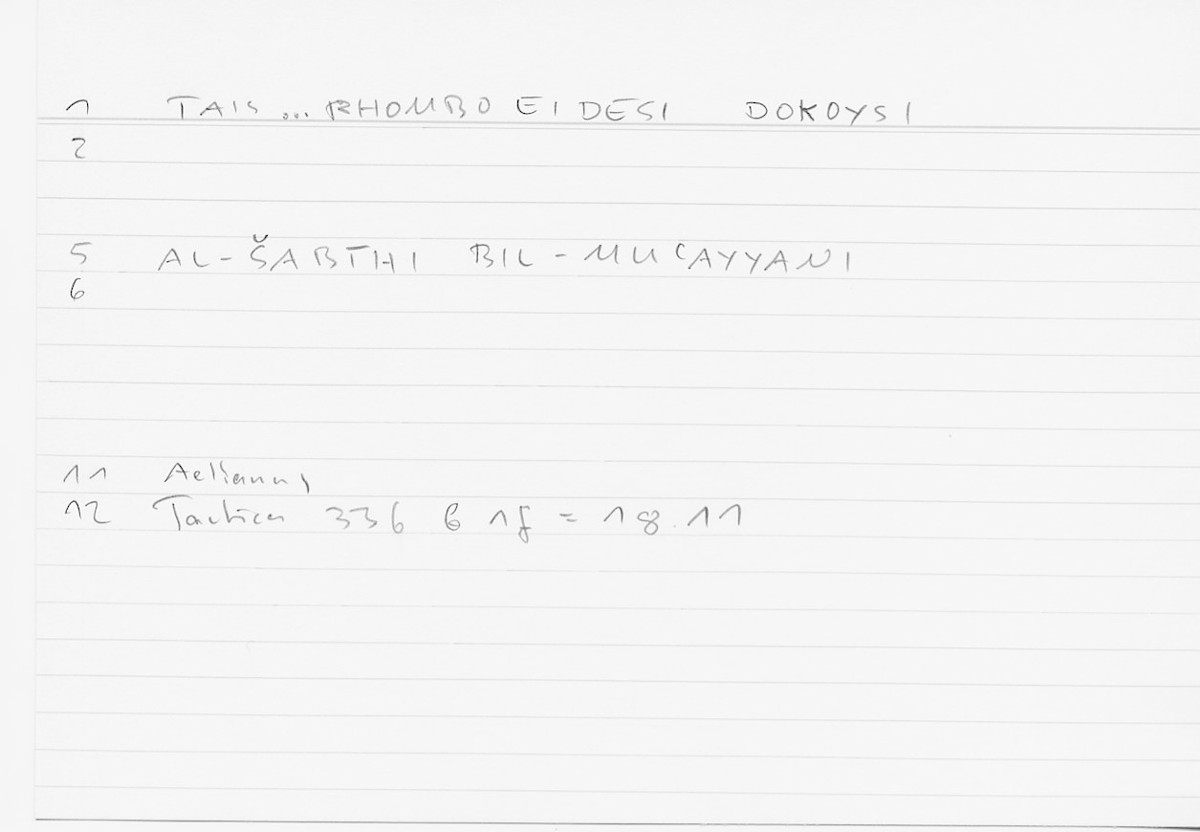 1 TAIS ... RHOMBOEIDESI DOKOYSI
2
5 AL-ŠABĪHI BIL-MUʿAYYANI
6
11 Aelianus
12 Tactica 336 6 1f = 18.11